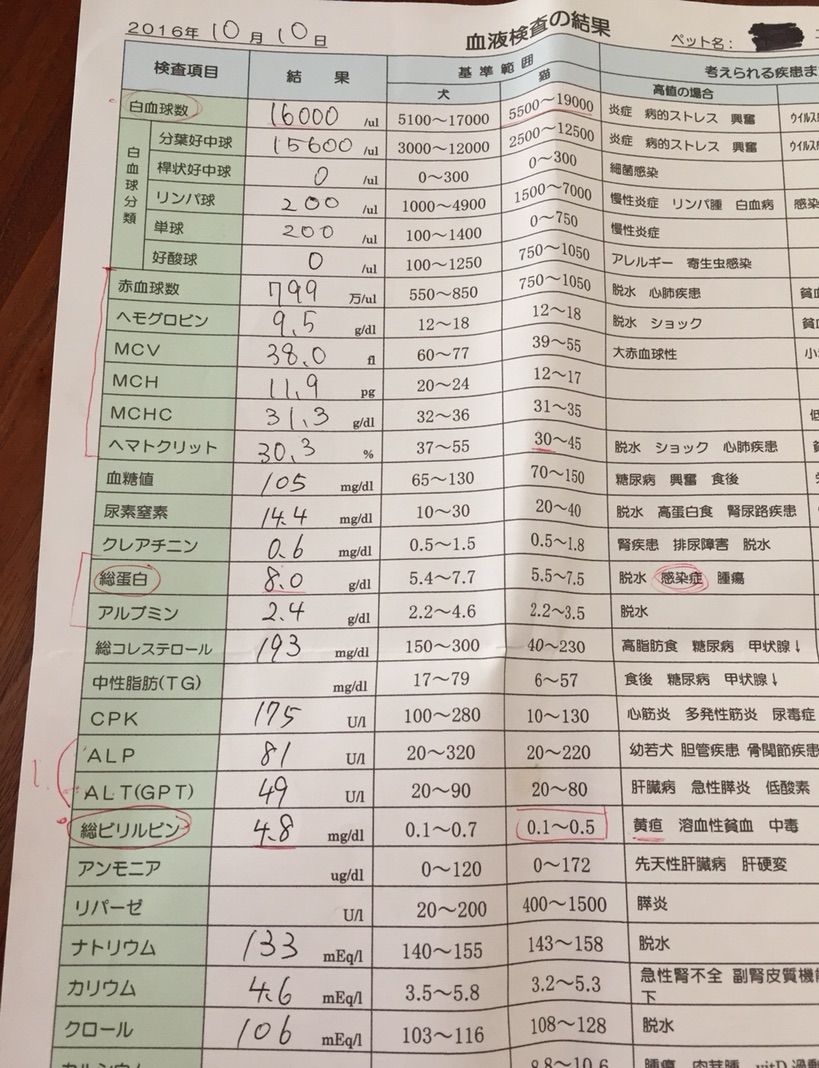 2016年 10月 10日
血液検査の結果
ペット名：
検査項目 結果 基準範囲 考えられる疾患ま
犬 猫 高値の場合
白血球数 16000 /ul 5100～17000 5500～19000 炎症 病的ストレス 興奮 ウイルス
白血球分類
分葉好中球 15600 /ul 3000～12000 2500～12500 炎症 病的ストレス 興奮 ウイルス
桿状好中球 0 /ul 0～300 0～300 細菌感染
リンパ球 200 /ul 1000～4900 1500～7000 慢性炎症 リンパ腫 白血病 感染
単球 200 /ul 100～1400 0～750 慢性炎症
好酸球 0 /ul 100～1250 750～1050 アレルギー 寄生虫感染
赤血球数 799 万/ul 550～850 750～1050 脱水 心肺疾患 貧血
ヘモグロビン 9.5 g/dl 12～18 12～18 脱水 ショック 貧血
MCV 38.0 fl 60～77 39～55 大赤血球性 小
MCH 11.9 pg 20～24 12～17
MCHC 31.3 g/dl 32～36 31～35 低
ヘマトクリット 30.3 % 37～55 30～45 脱水 ショック 心肺疾患
血糖値 105 mg/dl 65～130 70～150 糖尿病 興奮 食後
尿素窒素 14.4 mg/dl 10～30 20～40 脱水 高蛋白食 腎尿路疾患
クレアチニン 0.6 mg/dl 0.5～1.5 0.5～1.8 腎疾患 排尿障害 脱水
総蛋白 8.0 g/dl 5.4～7.7 5.5～7.5 脱水 感染症 腫瘍
アルブミン 2.4 g/dl 2.2～4.6 2.2～3.5 脱水
総コレステロール 193 mg/dl 150～300 40～230 高脂肪食 糖尿病 甲状腺↓
中性脂肪(TG) mg/dl 17～79 6～57 食後 糖尿病 甲状腺↓
CPK 175 U/l 100～280 10～130 心筋炎 多発性筋炎 尿毒症
ALP 81 U/l 20～320 20～220 幼若犬 胆管疾患 骨関節疾患
ALT(GPT) 49 U/l 20～90 20～80 肝臓病 急性膵炎 低酸素
総ビリルビン 4.8 mg/dl 0.1～0.7 0.1～0.5 黄疸 溶血性貧血 中毒
アンモニア ug/dl 0～120 0～172 先天性肝臓病 肝硬変
リパーゼ U/l 20～200 400～1500 膵炎
ナトリウム 133 mEq/l 140～155 143～158 脱水
カリウム 4.6 mEq/l 3.5～5.8 3.2～5.3 急性腎不全 副腎皮質機能
下
クロール 106 mEq/l 103～116 108～128 脱水
カルシウム 8.8～10.6 腫瘍 肉芽腫 vitD過剰